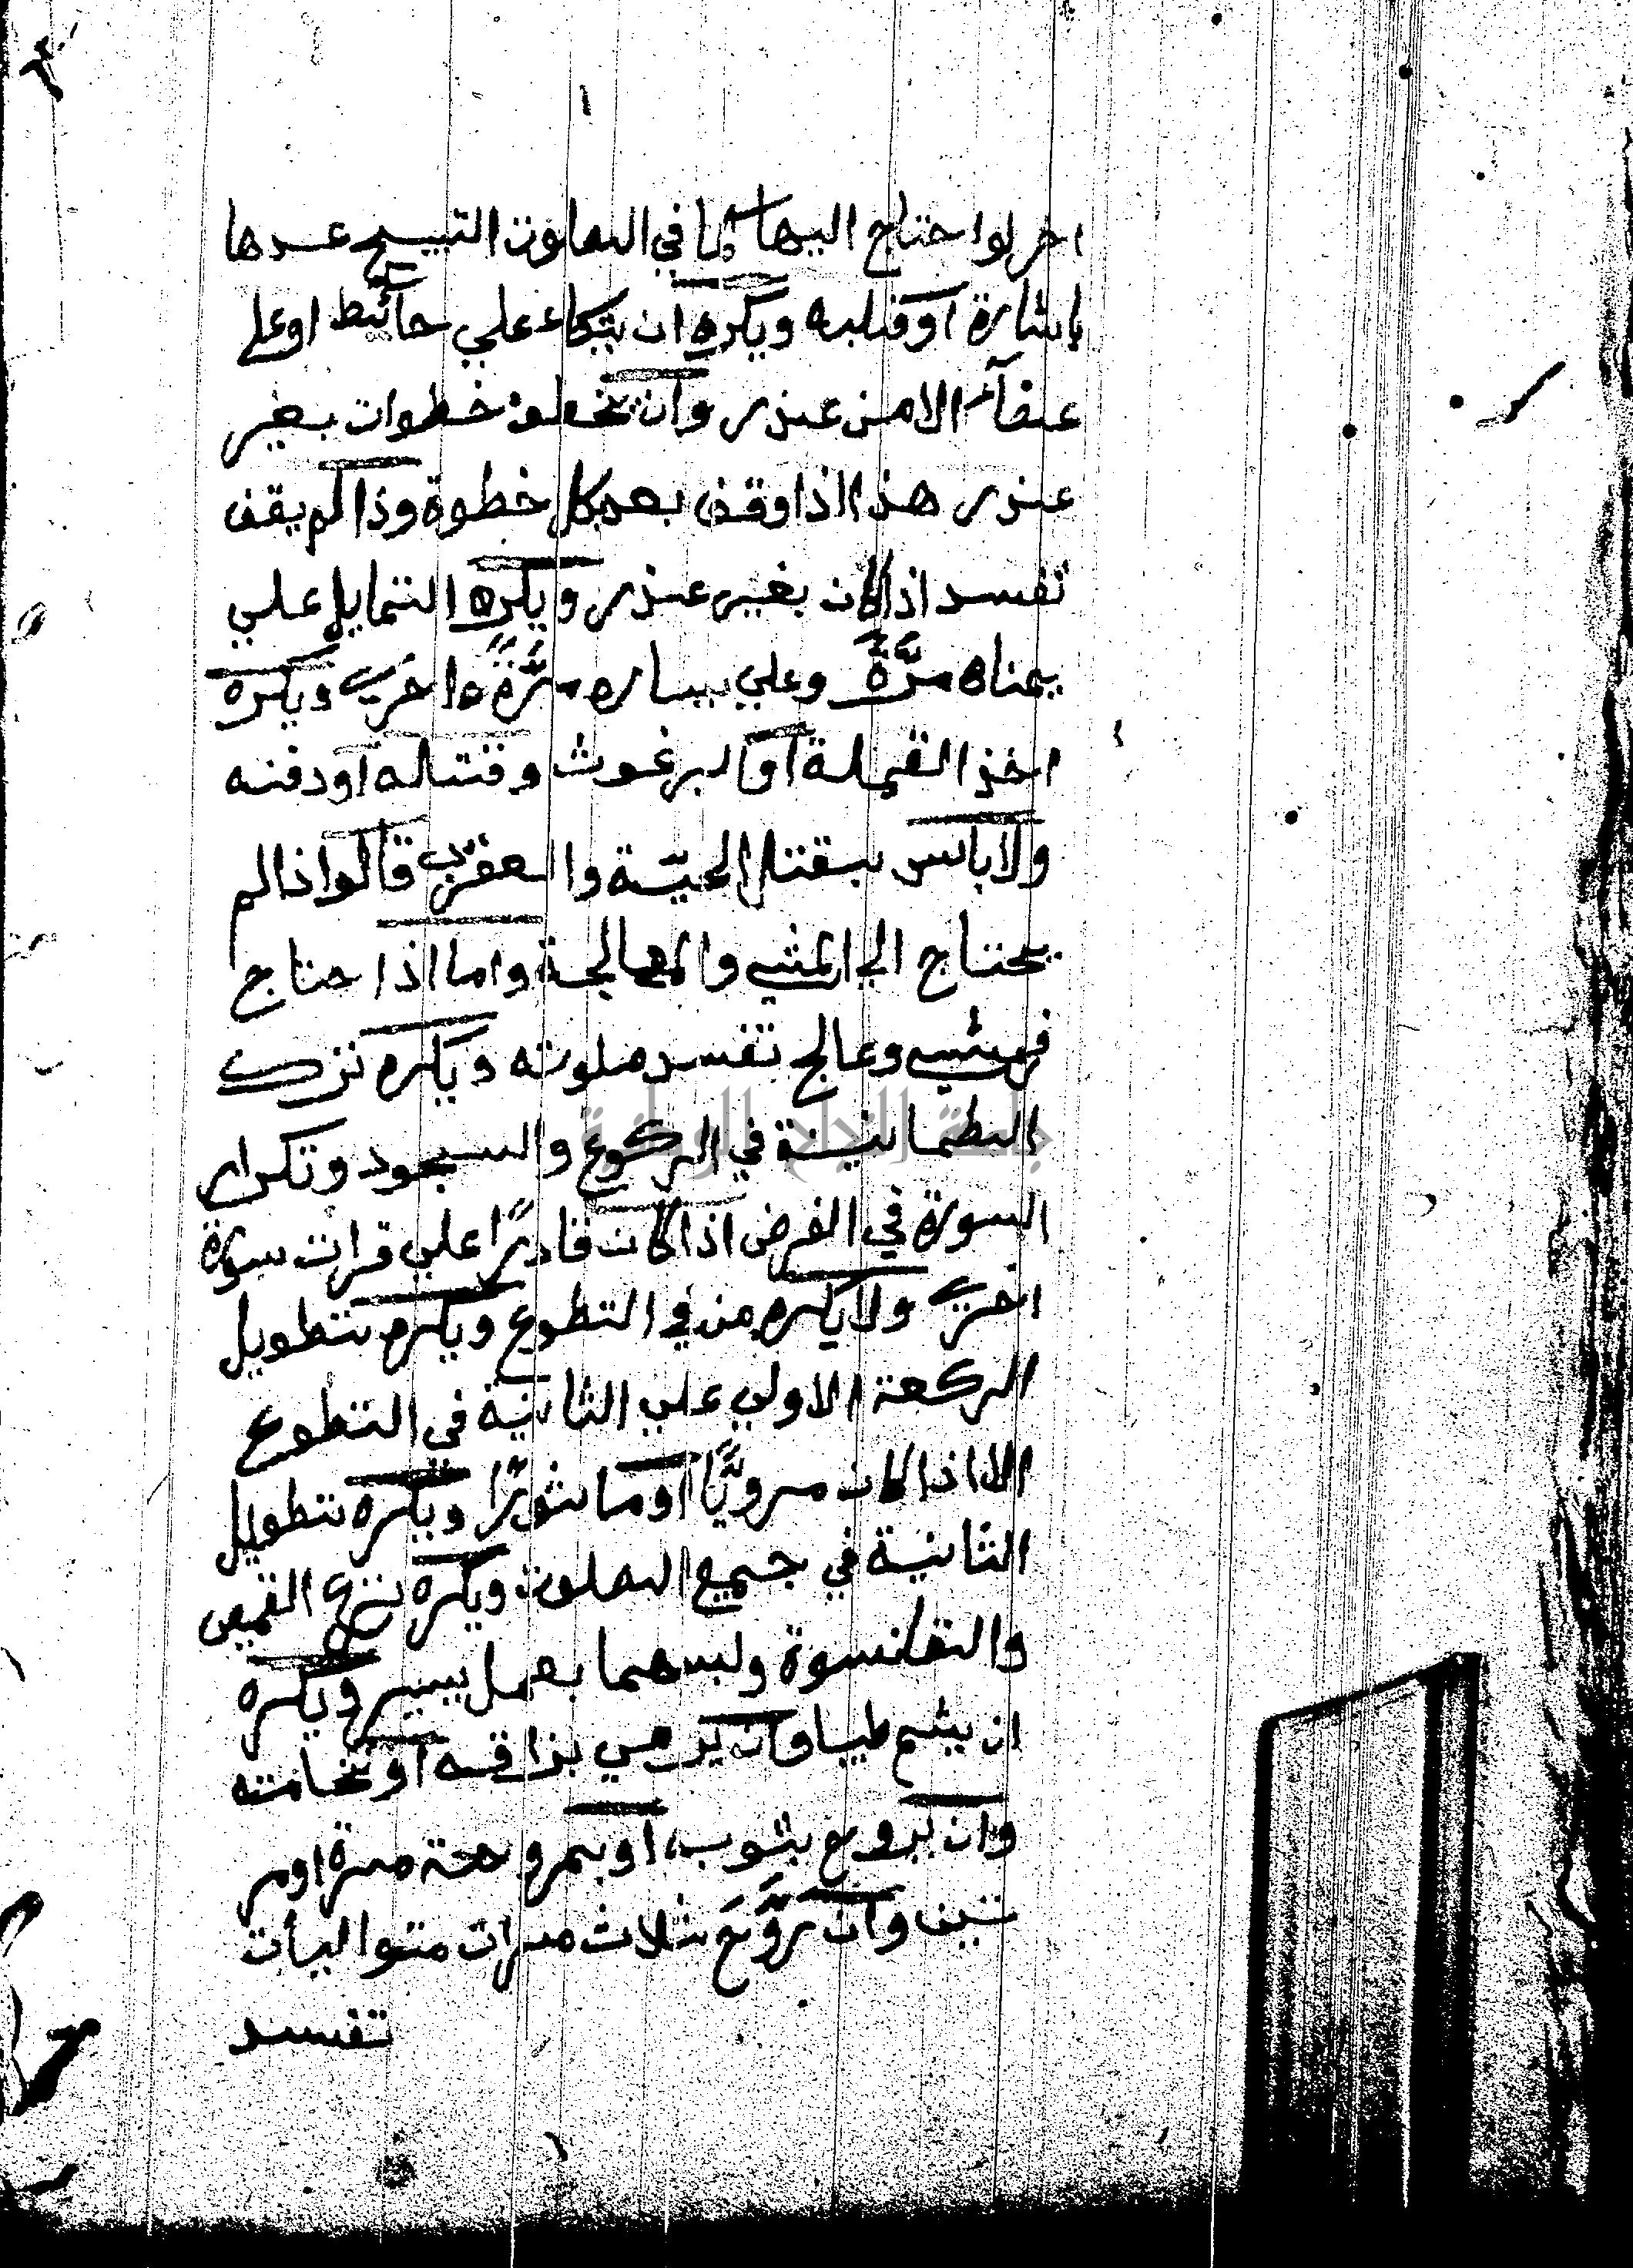 اخر لو احتاج اليها كما في الصلوت التسبيح عدها
باشارة او قلبه ويكره ان يتكاء علي حائط او علي
عصآء الا من عذر وان يخطو خطوات بغير
عذر هذا اذا وقف بعد كل خطوة وذا لم يقف
تفسد اذا كان بغير عذر ويكره التمايل علي
يمناه مرَّةً وعلي يساره مرَّةً اخري ويكره
اخذ القملة او البرغوث وقتله او دفنه
ولا باس بقتل الحيّة والعقرب قالوا اذا لم
يحتاج الي المشي والمعالجة واما اذا احتاج
فمشي وعالج تفسد صلوته ويكره ترك
الطمانينة في الركوع والسجود وتكرار
السورة في الفرض اذا كان قادرًا علي قرات سورة
اخري ولا يكره من في التطوع ويكره تطويل
الركعة الاولي علي الثانية في التطوع
الا اذا كان مرويًّا او ماثورًا ويكره تطويل
الثانية في جميع الصلوت ويكره نزع القميص
والقلنسوة ولبسهما بعمل يسير ويكره
ان يشم طيبا وان يرمي بزاقه او نخامته
وان يروح بثوب او بمروحة مرة او مر
تين وان تروَّحَ ثلاث مرات متواليات
تفسد
جامعة النجاح الوطنية